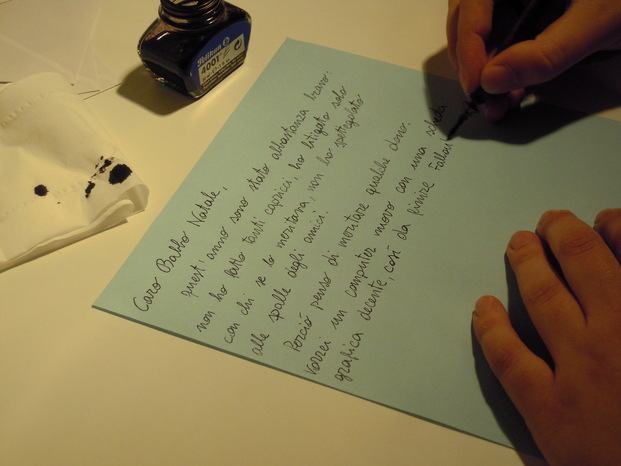 Pelikan
4001
Caro Babbo Natale,
quest'anno sono stato abbastanza bravo:
non ho fatto tanti capricci, ho litigato solo
con chi se lo meritava, non ho spettegolato
alle spalle degli amici.
Perciò penso di meritare qualche dono.
Vorrei un computer nuovo con una scheda
grafica decente, così da finire Fallout